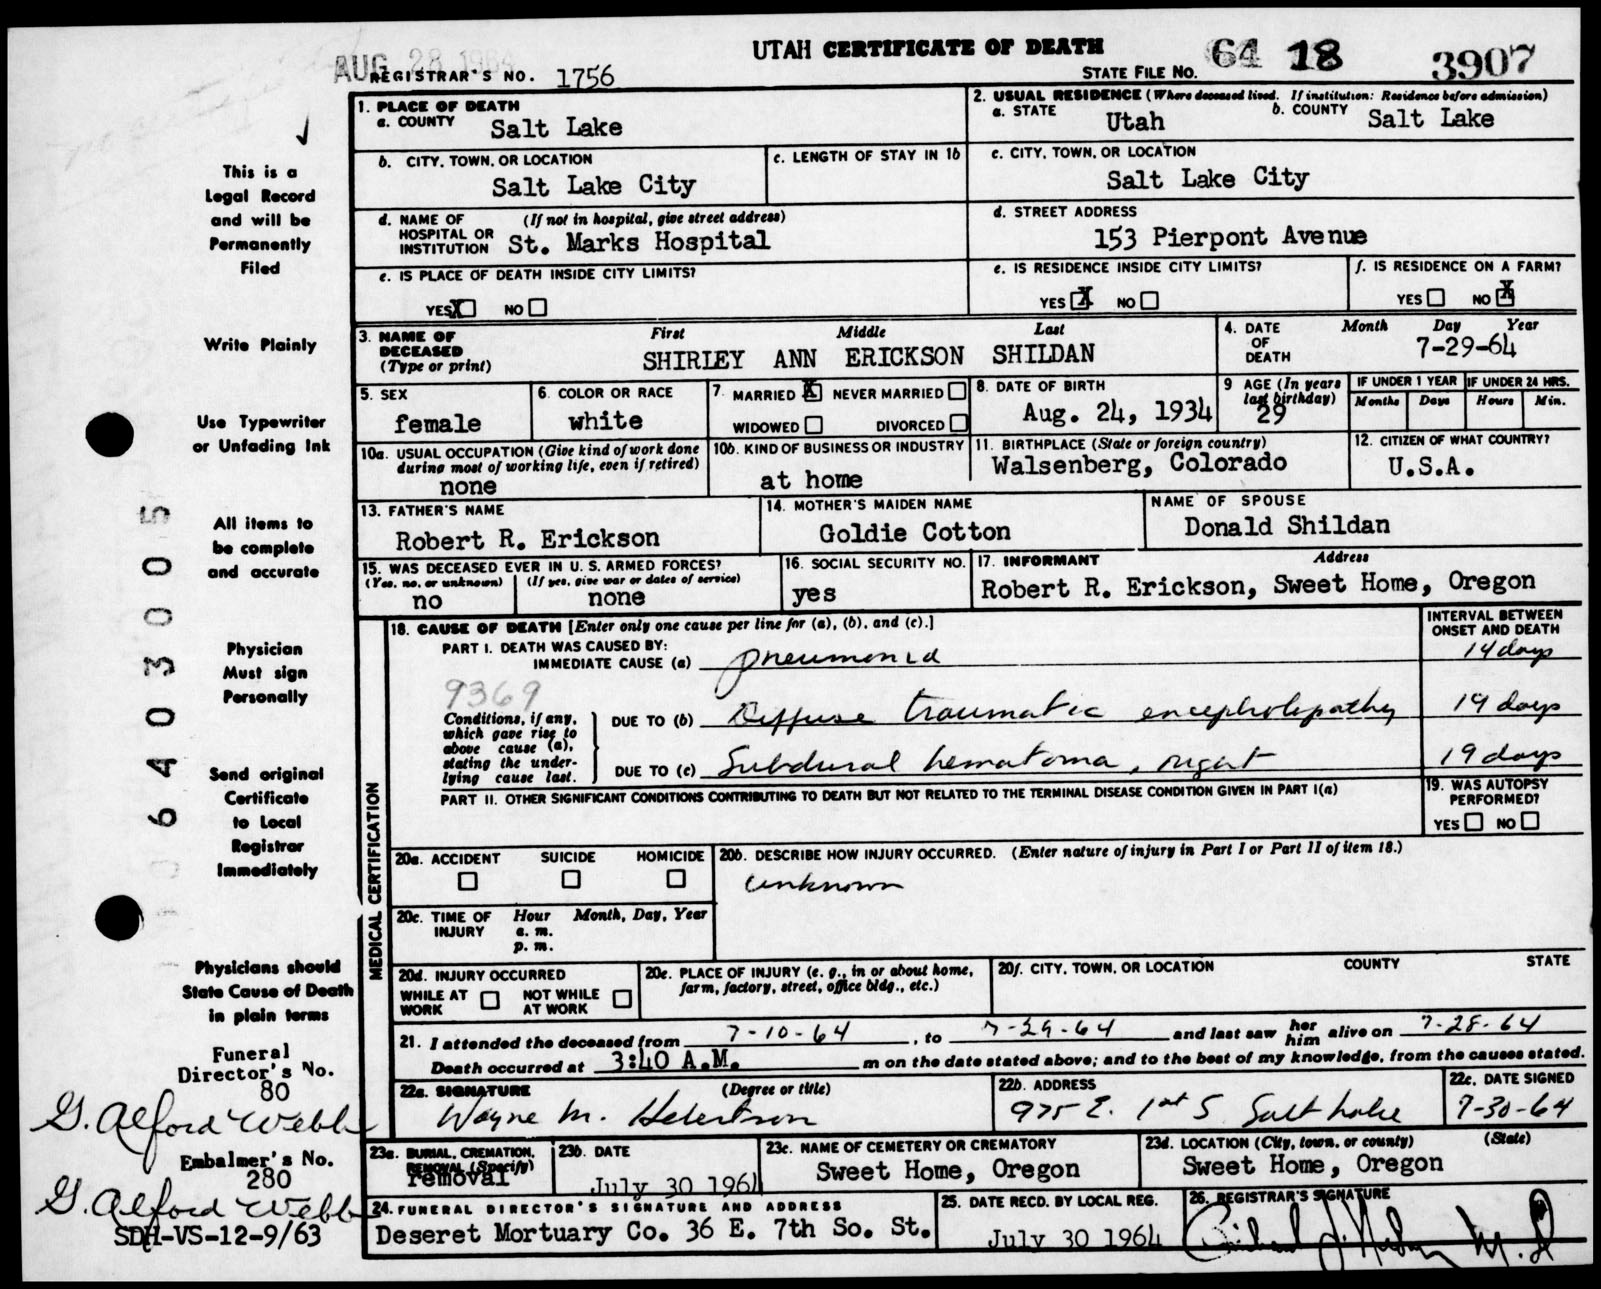 UTAH CERTIFICATE OF DEATH
AUG 28 1964
REGISTRAR'S NO. 1756
STATE FILE NO. 64 18 3907
1. PLACE OF DEATH
a. COUNTY Salt Lake
2. USUAL RESIDENCE (Where deceased lived. If institution: Residence before admission)
a. STATE Utah b. COUNTY Salt Lake
b. CITY, TOWN, OR LOCATION Salt Lake City
c. LENGTH OF STAY IN 1b
c. CITY, TOWN, OR LOCATION Salt Lake City
d. NAME OF HOSPITAL OR INSTITUTION (If not in hospital, give street address) St. Marks Hospital
d. STREET ADDRESS 153 Pierpont Avenue
e. IS PLACE OF DEATH INSIDE CITY LIMITS?
YES X NO
e. IS RESIDENCE INSIDE CITY LIMITS?
YES X NO
f. IS RESIDENCE ON A FARM?
YES NO X
3. NAME OF DECEASED (Type or print)
First Middle Last
SHIRLEY ANN ERICKSON SHILDAN
4. DATE OF DEATH Month Day Year
7-29-64
5. SEX female
6. COLOR OR RACE white
7. MARRIED X NEVER MARRIED
WIDOWED DIVORCED
8. DATE OF BIRTH Aug. 24, 1934
9 AGE (In years last birthday) 29
IF UNDER 1 YEAR Months Days
IF UNDER 24 HRS. Hours Min.
10a. USUAL OCCUPATION (Give kind of work done during most of working life, even if retired) none
10b. KIND OF BUSINESS OR INDUSTRY at home
11. BIRTHPLACE (State or foreign country) Walsenberg, Colorado
12. CITIZEN OF WHAT COUNTRY? U.S.A.
13. FATHER'S NAME Robert R. Erickson
14. MOTHER'S MAIDEN NAME Goldie Cotton
NAME OF SPOUSE Donald Shildan
15. WAS DECEASED EVER IN U. S. ARMED FORCES?
(Yes, no, or unknown) no
(If yes, give war or dates of service) none
16. SOCIAL SECURITY NO. yes
17. INFORMANT Address
Robert R. Erickson, Sweet Home, Oregon
MEDICAL CERTIFICATION
18. CAUSE OF DEATH [Enter only one cause per line for (a), (b), and (c).]
INTERVAL BETWEEN ONSET AND DEATH
PART I. DEATH WAS CAUSED BY:
IMMEDIATE CAUSE (a) pneumonia 14 days
9369
Conditions, if any, which gave rise to above cause (a), stating the underlying cause last.
DUE TO (b) Diffuse traumatic encephalopathy 19 days
DUE TO (c) Subdural hematoma, right 19 days
PART II. OTHER SIGNIFICANT CONDITIONS CONTRIBUTING TO DEATH BUT NOT RELATED TO THE TERMINAL DISEASE CONDITION GIVEN IN PART I(a)
19. WAS AUTOPSY PERFORMED?
YES NO
20a. ACCIDENT SUICIDE HOMICIDE
20b. DESCRIBE HOW INJURY OCCURRED. (Enter nature of injury in Part I or Part II of item 18.)
unknown
20c. TIME OF INJURY Hour Month, Day, Year
a. m.
p. m.
20d. INJURY OCCURRED
WHILE AT WORK NOT WHILE AT WORK
20e. PLACE OF INJURY (e. g., in or about home, farm, factory, street, office bldg., etc.)
20f. CITY, TOWN, OR LOCATION COUNTY STATE
21. I attended the deceased from 7-10-64, to 7-29-64 and last saw her him alive on 7-28-64
Death occurred at 3:40 A.M. m on the date stated above; and to the best of my knowledge, from the causes stated.
22a. SIGNATURE (Degree or title)
Wayne M. Hebertson
22b. ADDRESS 975 E. 1st S Salt Lake
22c. DATE SIGNED 7-30-64
23a. BURIAL, CREMATION, REMOVAL (Specify) removal
23b. DATE July 30 1964
23c. NAME OF CEMETERY OR CREMATORY Sweet Home, Oregon
23d. LOCATION (City, town, or county) (State) Sweet Home, Oregon
24. FUNERAL DIRECTOR'S SIGNATURE AND ADDRESS
Deseret Mortuary Co. 36 E. 7th So. St.
25. DATE RECD. BY LOCAL REG. July 30 1964
26. REGISTRAR'S SIGNATURE
M.D
This is a
Legal Record
and will be
Permanently
Filed
Write Plainly
Use Typewriter
or Unfading Ink
All items to
be complete
and accurate
Physician
Must sign
Personally
Send original
Certificate
to Local
Registrar
Immediately
Physicians should
State Cause of Death
in plain terms
Funeral
Director's No.
80
G. Alford Webb
Embalmer's No.
280
G. Alford Webb
SDH-VS-12-9/63
640303005